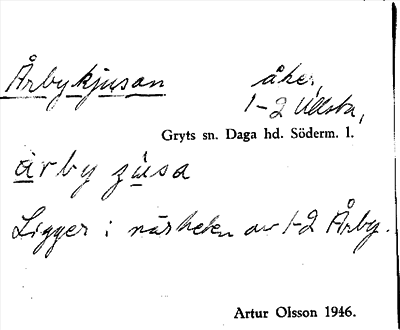 Årbykjusan åker,
1-2 Ullsta,
Gryts sn. Daga hd. Söderm. l.
årby ʒusa
Ligger i närheten av 1-2 Årby.
Artur Olsson 1946.